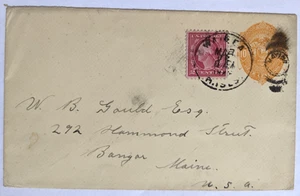 W. B. Gould, Esq.
292 Hammond Street.
Bangor
Maine.
U. S. A.